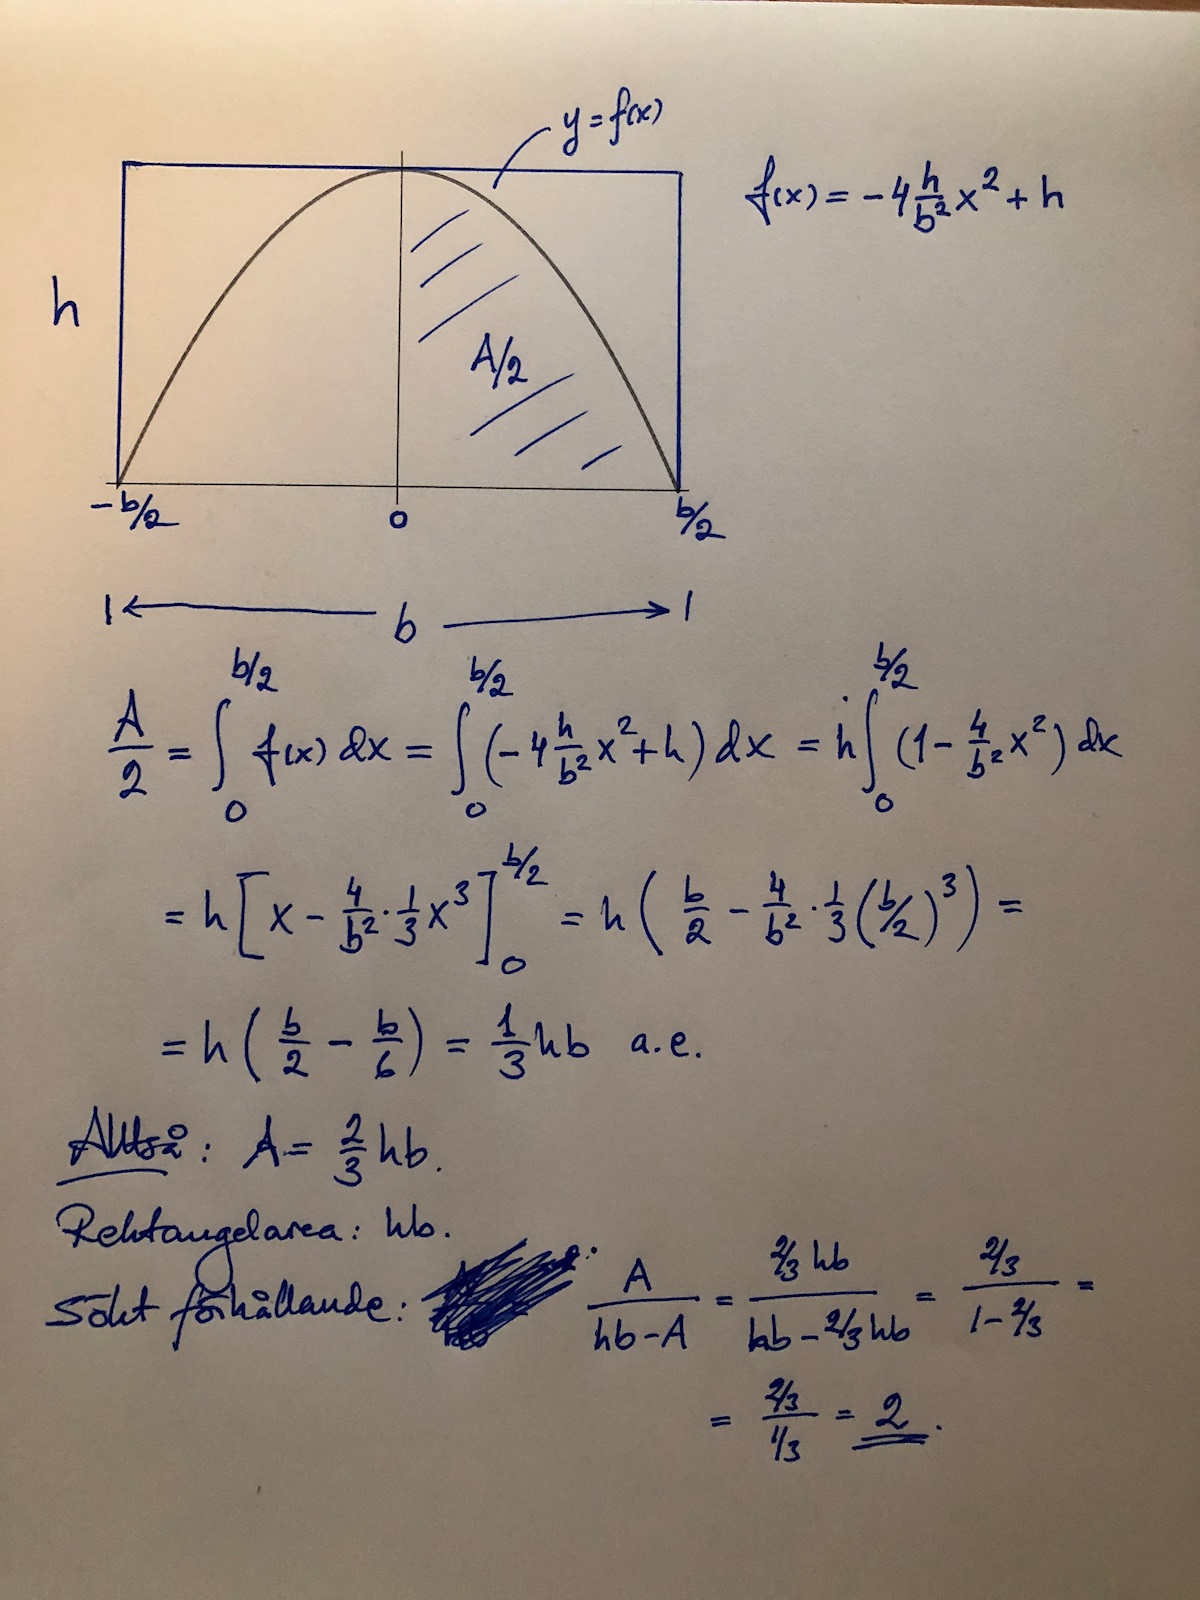 y = f(x)
f(x) = -4 h/b² x² + h
h
A/2
-b/2 0 b/2
b
A/2 = ∫₀^{b/2} f(x) dx = ∫₀^{b/2} (-4 h/b² x² + h) dx = h ∫₀^{b/2} (1 - 4/b² x²) dx
= h [x - 4/b² · 1/3 x³]₀^{b/2} = h (b/2 - 4/b² · 1/3 (b/2)³) =
= h (b/2 - b/6) = 1/3 hb a.e.
Alltså: A = 2/3 hb.
Rektangelarea: hb.
Sökt förhållande: A/(hb - A) = (2/3 hb)/(hb - 2/3 hb) = (2/3)/(1 - 2/3) =
= (2/3)/(1/3) = 2.